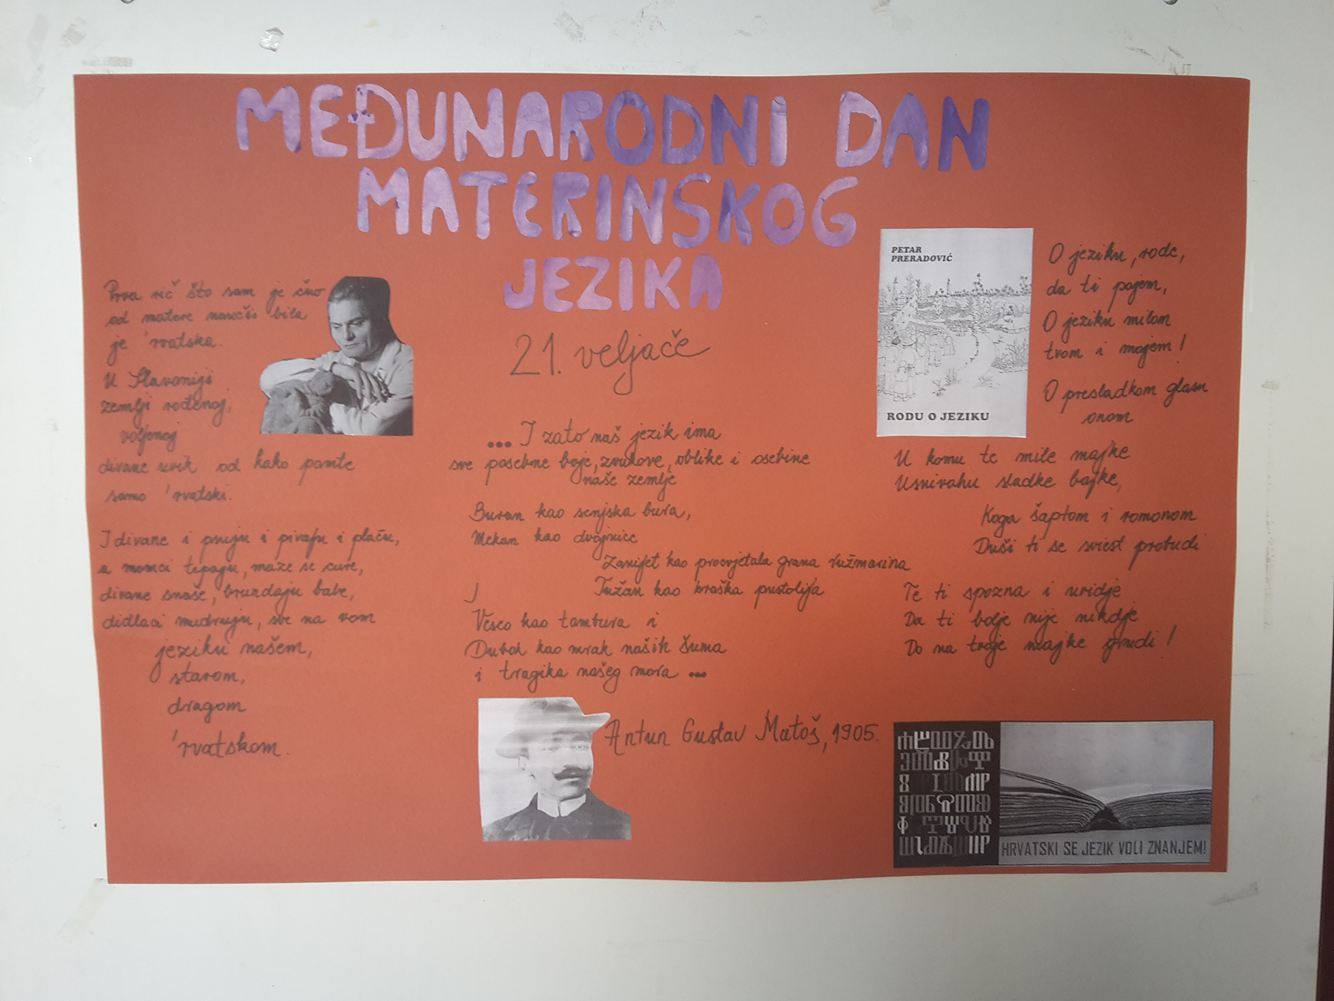 MEĐUNARODNI DAN
MATERINSKOG
JEZIKA
21. veljače
Prva rič što sam je čuo
od matere naučio bila
je 'rvatska.
U Slavoniji
zemlji rođenoj,
voljenoj
divane uvik od kako pamte
samo 'rvatski.
I divane i psuju i pivaju i plaču,
a momci tepaju, maze se cure,
divane snaše, brundaju babe,
didaci mudruju, sve na vom
jeziku našem,
starom,
dragom
'rvatskom.
... I zato naš jezik ima
sve posebne boje, zvukove, oblike i osebine
naše zemlje
Buran kao senjska bura,
Mekan kao dvojnice
Zanijet kao procvjetala grana ružmarina
I Tužan kao kraška pustolija
Veseo kao tambura i
Dubok kao mrak naših šuma
i tragika našeg mora ...
Antun Gustav Matoš, 1905.
PETAR
PRERADOVIĆ
RODU O JEZIKU
O jeziku, rode,
da ti pojem,
O jeziku milom
tvom i mojem!
O presladkom glasu
onom
U komu te mile majke
Usnivahu sladke bajke,
Koga šaptom i romonom
Duši ti se sviest probudi
Te ti spozna i uvidje
Da ti bolje nije nikdje
Do na tvoje majke grudi!
HRVATSKI SE JEZIK VOLI ZNANJEM!